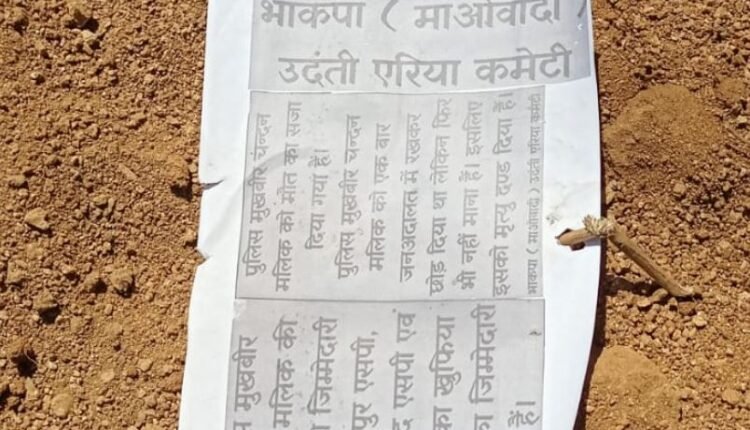 भाकपा ( माओवादी )
उदंती एरिया कमेटी
पुलिस मुखबीर चन्दन
मलिक को मौत का सजा
दिया गया हैं।
पुलिस मुखबीर चन्दन
मलिक को एक बार
जनअदालत में रखकर
छोड दिया था लेकिन फिर
भी नहीं माना हैं। इसलिए
इसको मृत्यु दण्ड दिया हैं।
भाकपा ( माओवादी ) उदंती एरिया कमेटी
मुखबीर
मलिक की
जिम्मेदारी
पुर एसपी,
एसपी एवं
का खुफिया
जिम्मेदारी
हैं।